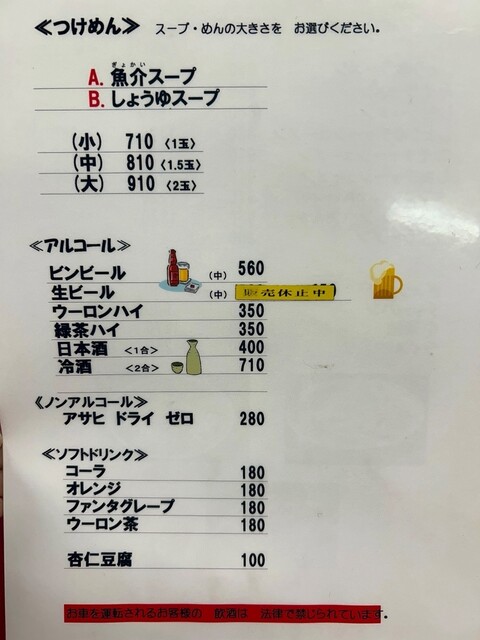 ≪つけめん≫ スープ・めんの大きさを お選びください。
ぎょかい
A. 魚介スープ
B. しょうゆスープ
(小) 710 〈1玉〉
(中) 810 〈1.5玉〉
(大) 910 〈2玉〉
≪アルコール≫
ビンビール (中) 560
生ビール (中) 販売休止中
ウーロンハイ 350
緑茶ハイ 350
日本酒 <1合> 400
冷酒 <2合> 710
≪ノンアルコール≫
アサヒ ドライ ゼロ 280
≪ソフトドリンク≫
コーラ 180
オレンジ 180
ファンタグレープ 180
ウーロン茶 180
杏仁豆腐 100
お車を運転されるお客様の 飲酒は 法律で禁じられています。